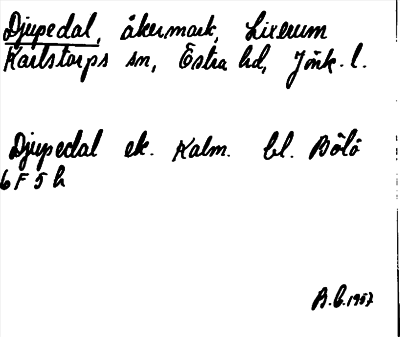 Djupedal, åkermark, Lixerum
Karlstorps sn, Östra hd, Jönk. l.
Djupedal ek. Kalm. bl. Bölö
6 F 5 h
B.G. 1957